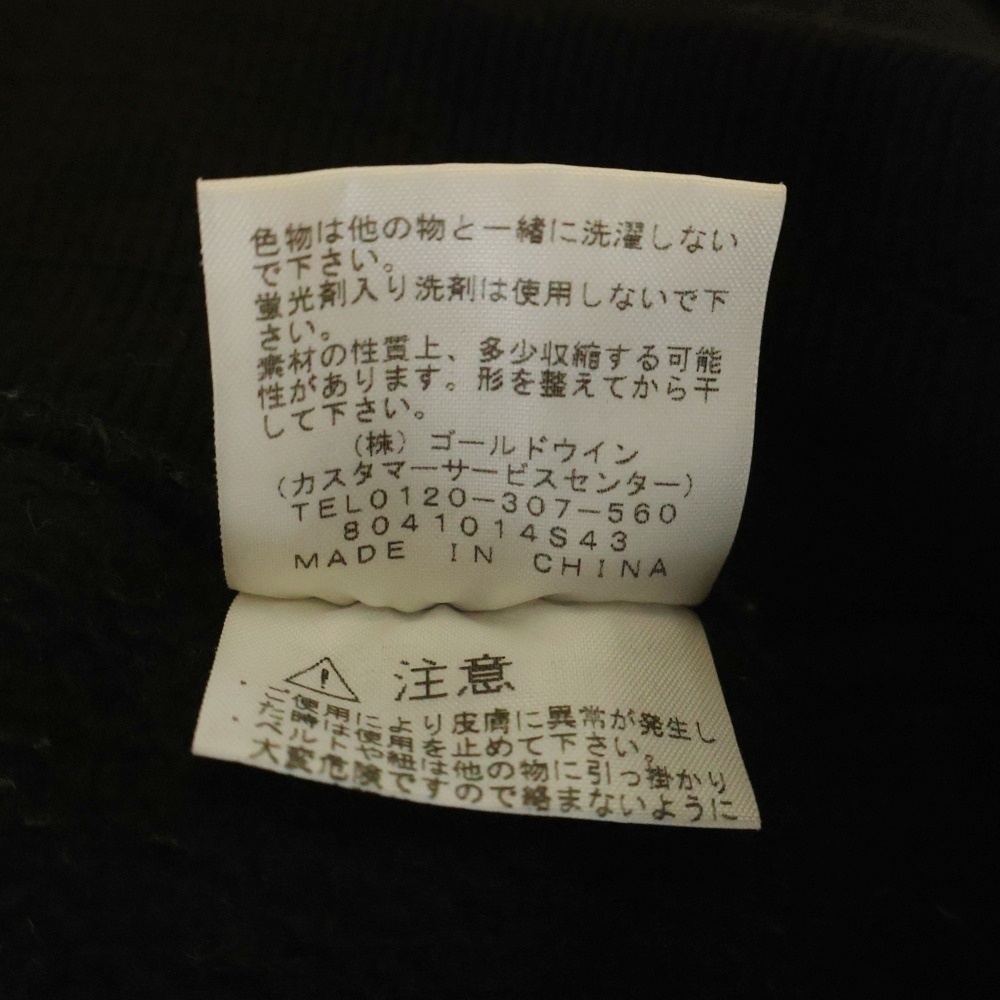 色物は他の物と一緒に洗濯しない
で下さい。
蛍光剤入り洗剤は使用しないで下
さい。
素材の性質上、多少収縮する可能
性があります。形を整えてから干
して下さい。
(株) ゴールドウイン
(カスタマーサービスセンター)
TEL0120-307-560
8041014S43
MADE IN CHINA
注意
ご使用により皮膚に異常が発生し
た時は使用を止めて下さい。
ベルトや紐は他の物に引っ掛かり
大変危険ですので絡まないように